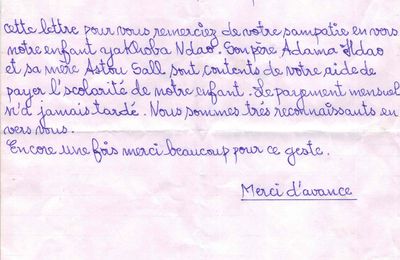 cette lettre pour vous remerciez de votre sampatie en vers
notre enfant yakhoba Ndao. Son père Adama Ndao
et sa mère Astou Sall sont contents de votre aide de
payer l'scolarité de notre enfant. Le payement mensuel
n'a jamais tardé. Nous sommes trés reconnaissants en
vers vous.
Encore une fois merci beaucoup pour ce geste.
Merci d'avance